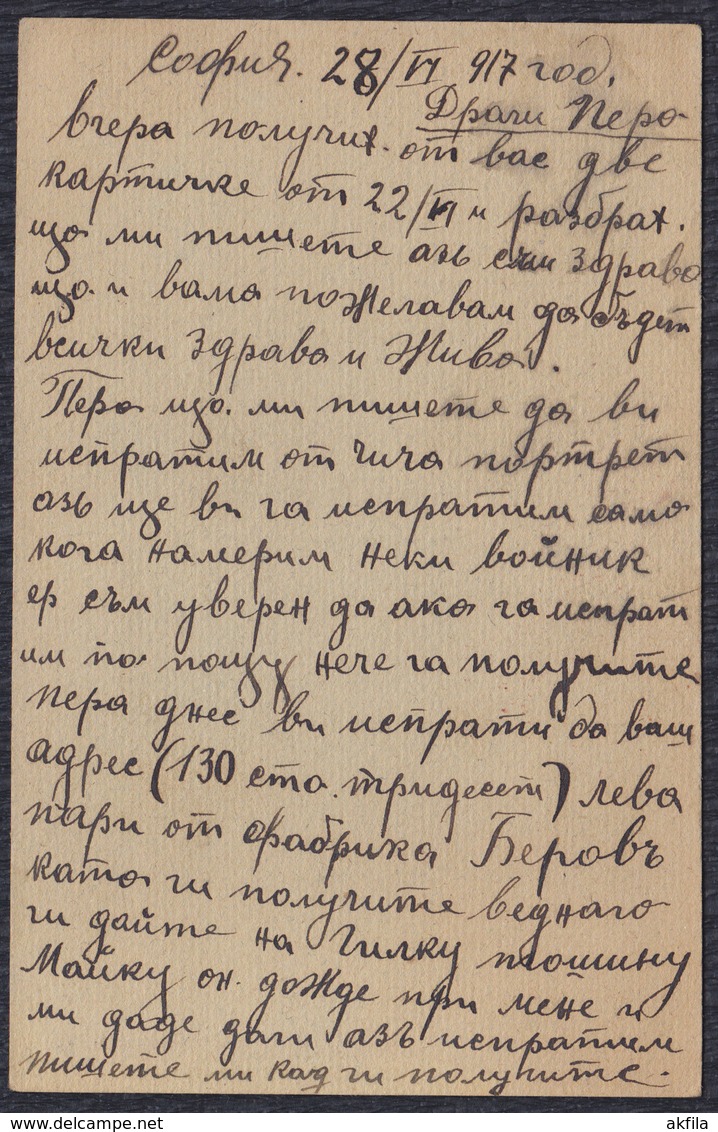 София. 28/VI 917 год.
Драги Перо
вчера получих от вас две
картичке от 22/VI и разбрах.
що ми пишете азь съм здраво
що и вама пожелавам да бъдет
всички здрава и жива.
Перо що ми пишете да ви
испратим от чича портрет
азь ще ви га испратим само
кога намерим неки войник
ер съм уверен да ако га испрат
им по пощу нече га получите
пера днес ви испрати до ваш
адрес (130 сто тридесет) лева
пари от фабрика Беровъ
като ги получите веднаго
ги дайте на Гилку тошину
Майку он дожде при мене и
ми даде даги азъ испратим
пишете ми кад ги получите.
akfila